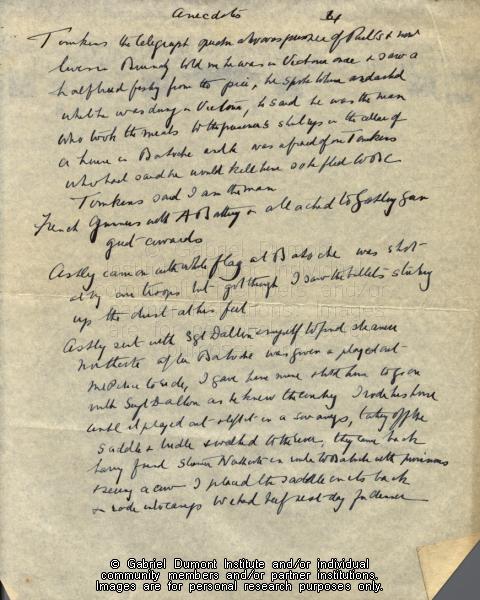 Anecdotes 24
Tomkins the telegraph who was prisoner of Riel's & now
lives in told me he was in Victoria once & saw a
halfbreed from the pier, he spoke to him asked
what he was doing in Victoria, he said he was the man
who took the meals to the prisoners shut up in the cellar of
a house in Batoche and he was afraid of one Tomkins
who had said he would kill him so he fled to BC
Tomkins said I am the man
French Gunners with A Battery on attached to Gatling Gun
great cowards
Astley came on with white flag at Batoche was shot
at by our troops but got through I saw the bullets
up the dust at his feet
Astley sent with Sgt Dallon & myself to find steamer
Northcote after Batoche was given a played out
to ride, I gave him mine & told him to go on
with Sergt Dallon as he knew the country I rode his horse
until it played out & left it in a swamp, taking off the
saddle & bridle & walked to the river, they came back
having found steamer Northcote en route to Batoche with prisoners
& seeing a cow I placed the saddle on its back
& rode into camp We had beef next day for dinner
© Gabriel Dumont Institute and/or individual
community members and/or partner institutions.
Images are for personal research purposes only.